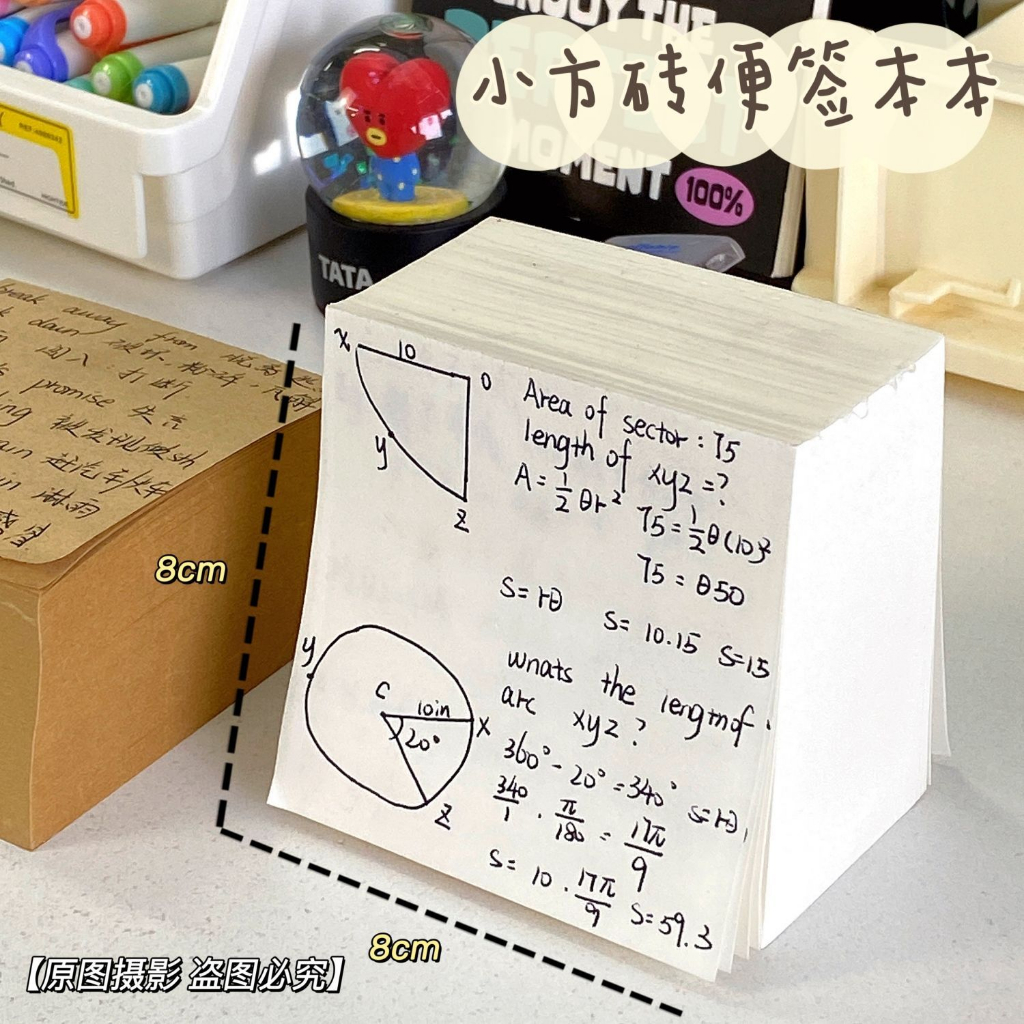 小方砖便签本本
ENJOY THE
MOMENT
100%
TATA
break away from
promise 失言
淋雨
x
10
O
y
z
Area of sector : 75
length of xyz = ?
A = 1/2 θr²
75 = 1/2 θ(10)²
75 = θ50
S = rθ
S = 10.15 S=15
y
C
10in
x
20°
z
wnats the lengthof
arc xyz ?
360° - 20° = 340° S=rθ,
340/1 · π/180 = 17π/9
S = 10 · 17π/9 S=59.3
8cm
8cm
【原图摄影 盗图必究】